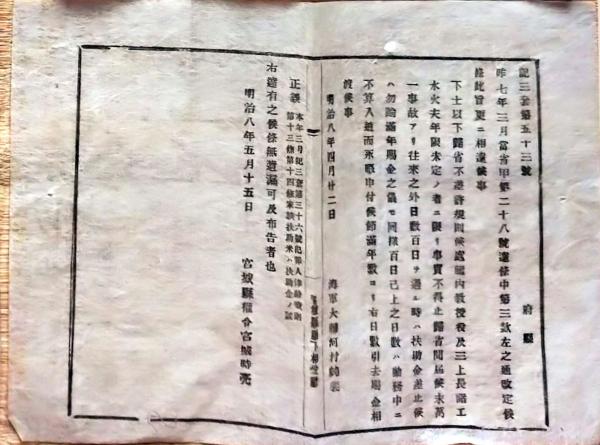 記三套第五十三號
府縣
昨七年三月當省甲第二十八號達條中第三款左之通改定候
條此旨更ニ相達候事
下士以下歸省不差許規則候處艦內教授役及三上長諸工
水火夫年限未定ノ者ニ限リ事實不得止歸省聞届候末萬
一事故アリ往來之外日數百日ヲ過ル時ハ扶助金差止候
ハ勿論滿年賜金之儀モ同樣百日已上之日數ハ勤務中ニ
不算入追而永暇申付候節滿年數ヨリ右日數引去賜金相
渡候事
明治八年四月廿二日
海軍大輔河村純義
正誤 本年三月記三套第三十六號犯罪人
第十三條第十四條家族扶助米ハ扶助金ノ誤
右達有之候條無遺漏可及布告者也
明治八年五月十五日
宮城縣權令宮城時亮